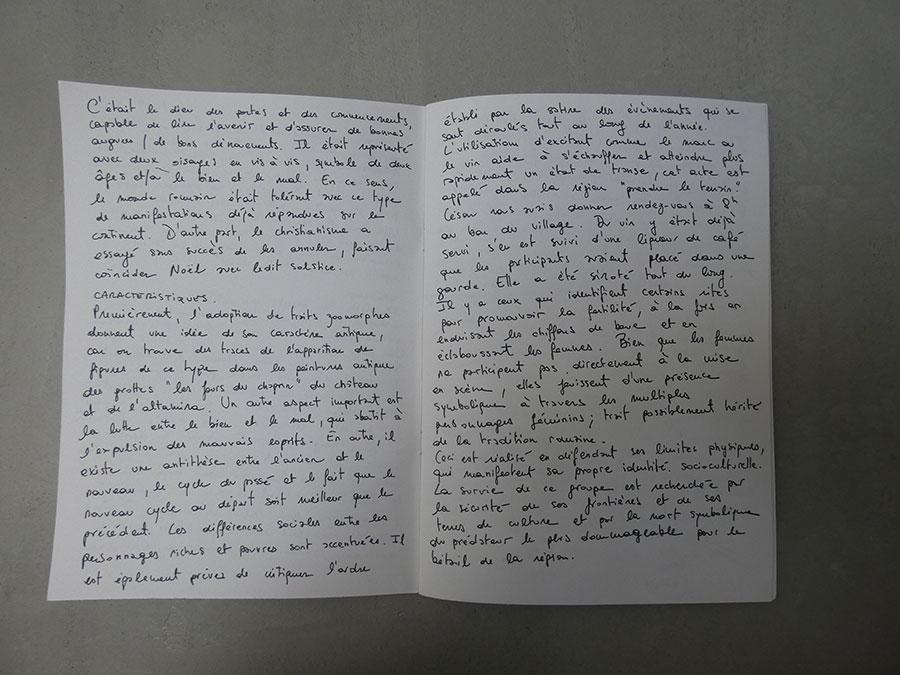 C'était le dieu des portes et des commencements,
capable de lire l'avenir et d'assurer de bonnes
augures / de bons dénouements. Il était représenté
avec deux visages en vis à vis, symbole de deux
âges et/à le bien et le mal. En ce sens,
le monde romain était tolérant avec ce type
de manifestations déjà répandues sur le
continent. D'autre part, le christianisme a
essayé sans succès de les annuler, faisant
coïncider Noël avec ledit solstice.
CARACTERISTIQUES.
Premièrement, l'adoption de traits zoomorphes
donnent une idée de son caractère antique,
car on trouve des traces de l'apparition de
figures de ce type dans les peintures antiques
des grottes "les fours du chapron" du château
et de l'altamira. Un autre aspect important est
la lutte entre le bien et le mal, qui abotit à
l'expulsion des mauvais esprits. En outre, il
existe une antithèse entre l'ancien et le
nouveau, le cycle du passé et le fait que le
nouveau cycle au départ soit meilleur que le
précédent. Les différences sociales entre les
personnages riches et pauvres sont accentuées. Il
est également prévu de critiquer l'ordre
établi par la satire des évènements qui se
sont déroulés tout au long de l'année.
L'utilisation d'excitant comme le marc ou
le vin aide à s'échauffer et atteindre plus
rapidement un état de transe, cet acte est
appelé dans la région "prendre le tensin."
César nous avais donner rendez-vous à 8h
au bar du village. Du vin y était déjà
servi, s'en est suivi d'une liqueur de café
que les participants avaient placé dans une
gourde. Elle a été siroté tout du long.
Il y a ceux qui identifient certains rites
pour promouvoir la fertilité, à la fois en
enduisant les chiffons de boue et en
éclaboussant les femmes. Bien que les femmes
ne participent pas directement à la mise
en scène, elles jouissent d'une présence
symbolique à travers les multiples
personnages féminins; trait possiblement hérité
de la tradition romaine.
Ceci est réalité en défendant ses limites physiques,
qui manifestent sa propre identité socioculturelle.
La survie de ce groupe est recherchée par
la sécurité de ses frontières et de ses
terres de culture et par la mort symbolique
du prédateur le plus dommageable pour le
bétail de la région.